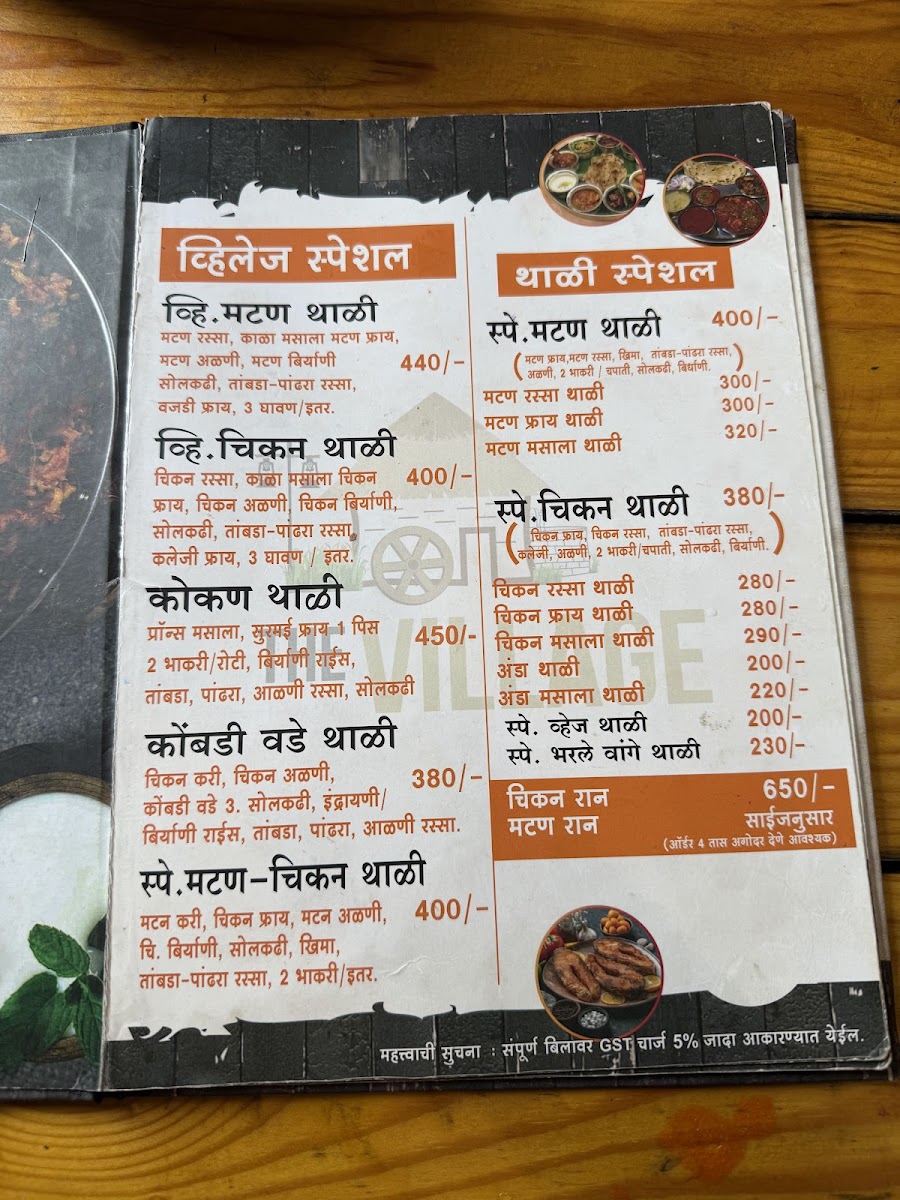 व्हिलेज स्पेशल
व्हि.मटण थाळी
मटण रस्सा, काळा मसाला मटण फ्राय,
मटण अळणी, मटण बिर्याणी 440/-
सोलकढी, तांबडा-पांढरा रस्सा,
वजडी फ्राय, 3 घावण/इतर.
व्हि.चिकन थाळी
चिकन रस्सा, काळा मसाला चिकन 400/-
फ्राय, चिकन अळणी, चिकन बिर्याणी,
सोलकढी, तांबडा-पांढरा रस्सा,
कलेजी फ्राय, 3 घावण / इतर.
कोकण थाळी
प्रॉन्स मसाला, सुरमई फ्राय 1 पिस 450/-
2 भाकरी/रोटी, बिर्याणी राईस,
तांबडा, पांढरा, आळणी रस्सा, सोलकढी
कोंबडी वडे थाळी
चिकन करी, चिकन अळणी, 380/-
कोंबडी वडे 3. सोलकढी, इंद्रायणी/
बिर्याणी राईस, तांबडा, पांढरा, आळणी रस्सा.
स्पे.मटण-चिकन थाळी
मटन करी, चिकन फ्राय, मटन अळणी, 400/-
चि. बिर्याणी, सोलकढी, खिमा,
तांबडा-पांढरा रस्सा, 2 भाकरी/इतर.
थाळी स्पेशल
स्पे.मटण थाळी 400/-
(मटण फ्राय,मटण रस्सा, खिमा, तांबडा-पांढरा रस्सा,
अळणी, 2 भाकरी / चपाती, सोलकढी, बिर्याणी.)
मटण रस्सा थाळी 300/-
मटण फ्राय थाळी 300/-
मटण मसाला थाळी 320/-
स्पे.चिकन थाळी 380/-
(चिकन फ्राय, चिकन रस्सा, तांबडा-पांढरा रस्सा,
कलेजी, अळणी, 2 भाकरी/चपाती, सोलकढी, बिर्याणी.)
चिकन रस्सा थाळी 280/-
चिकन फ्राय थाळी 280/-
चिकन मसाला थाळी 290/-
अंडा थाळी 200/-
अंडा मसाला थाळी 220/-
स्पे. व्हेज थाळी 200/-
स्पे. भरले वांगे थाळी 230/-
चिकन रान 650/-
मटण रान साईजनुसार
(ऑर्डर 4 तास अगोदर देणे आवश्यक)
THE VILLAGE
महत्त्वाची सुचना : संपूर्ण बिलावर GST चार्ज 5% जादा आकारण्यात येईल.